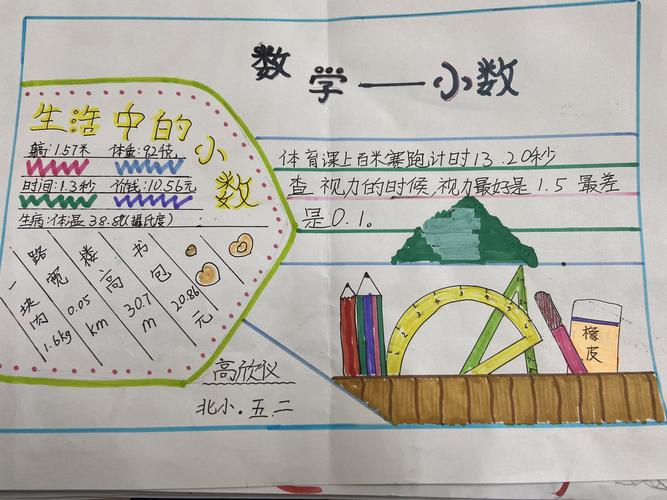 数学——小数
生活中的小数
身高:1.57米 体重:92斤
时间:1.3秒 价钱:10.56元
生病:体温38.8℃(摄氏度)
一块肉1.6kg
路宽0.05km
楼高30.7m
书包20.86元
体育课上百米赛跑计时13.20秒
查视力的时候,视力最好是1.5最差
是0.1。
橡皮
高欣仪
北小.五二